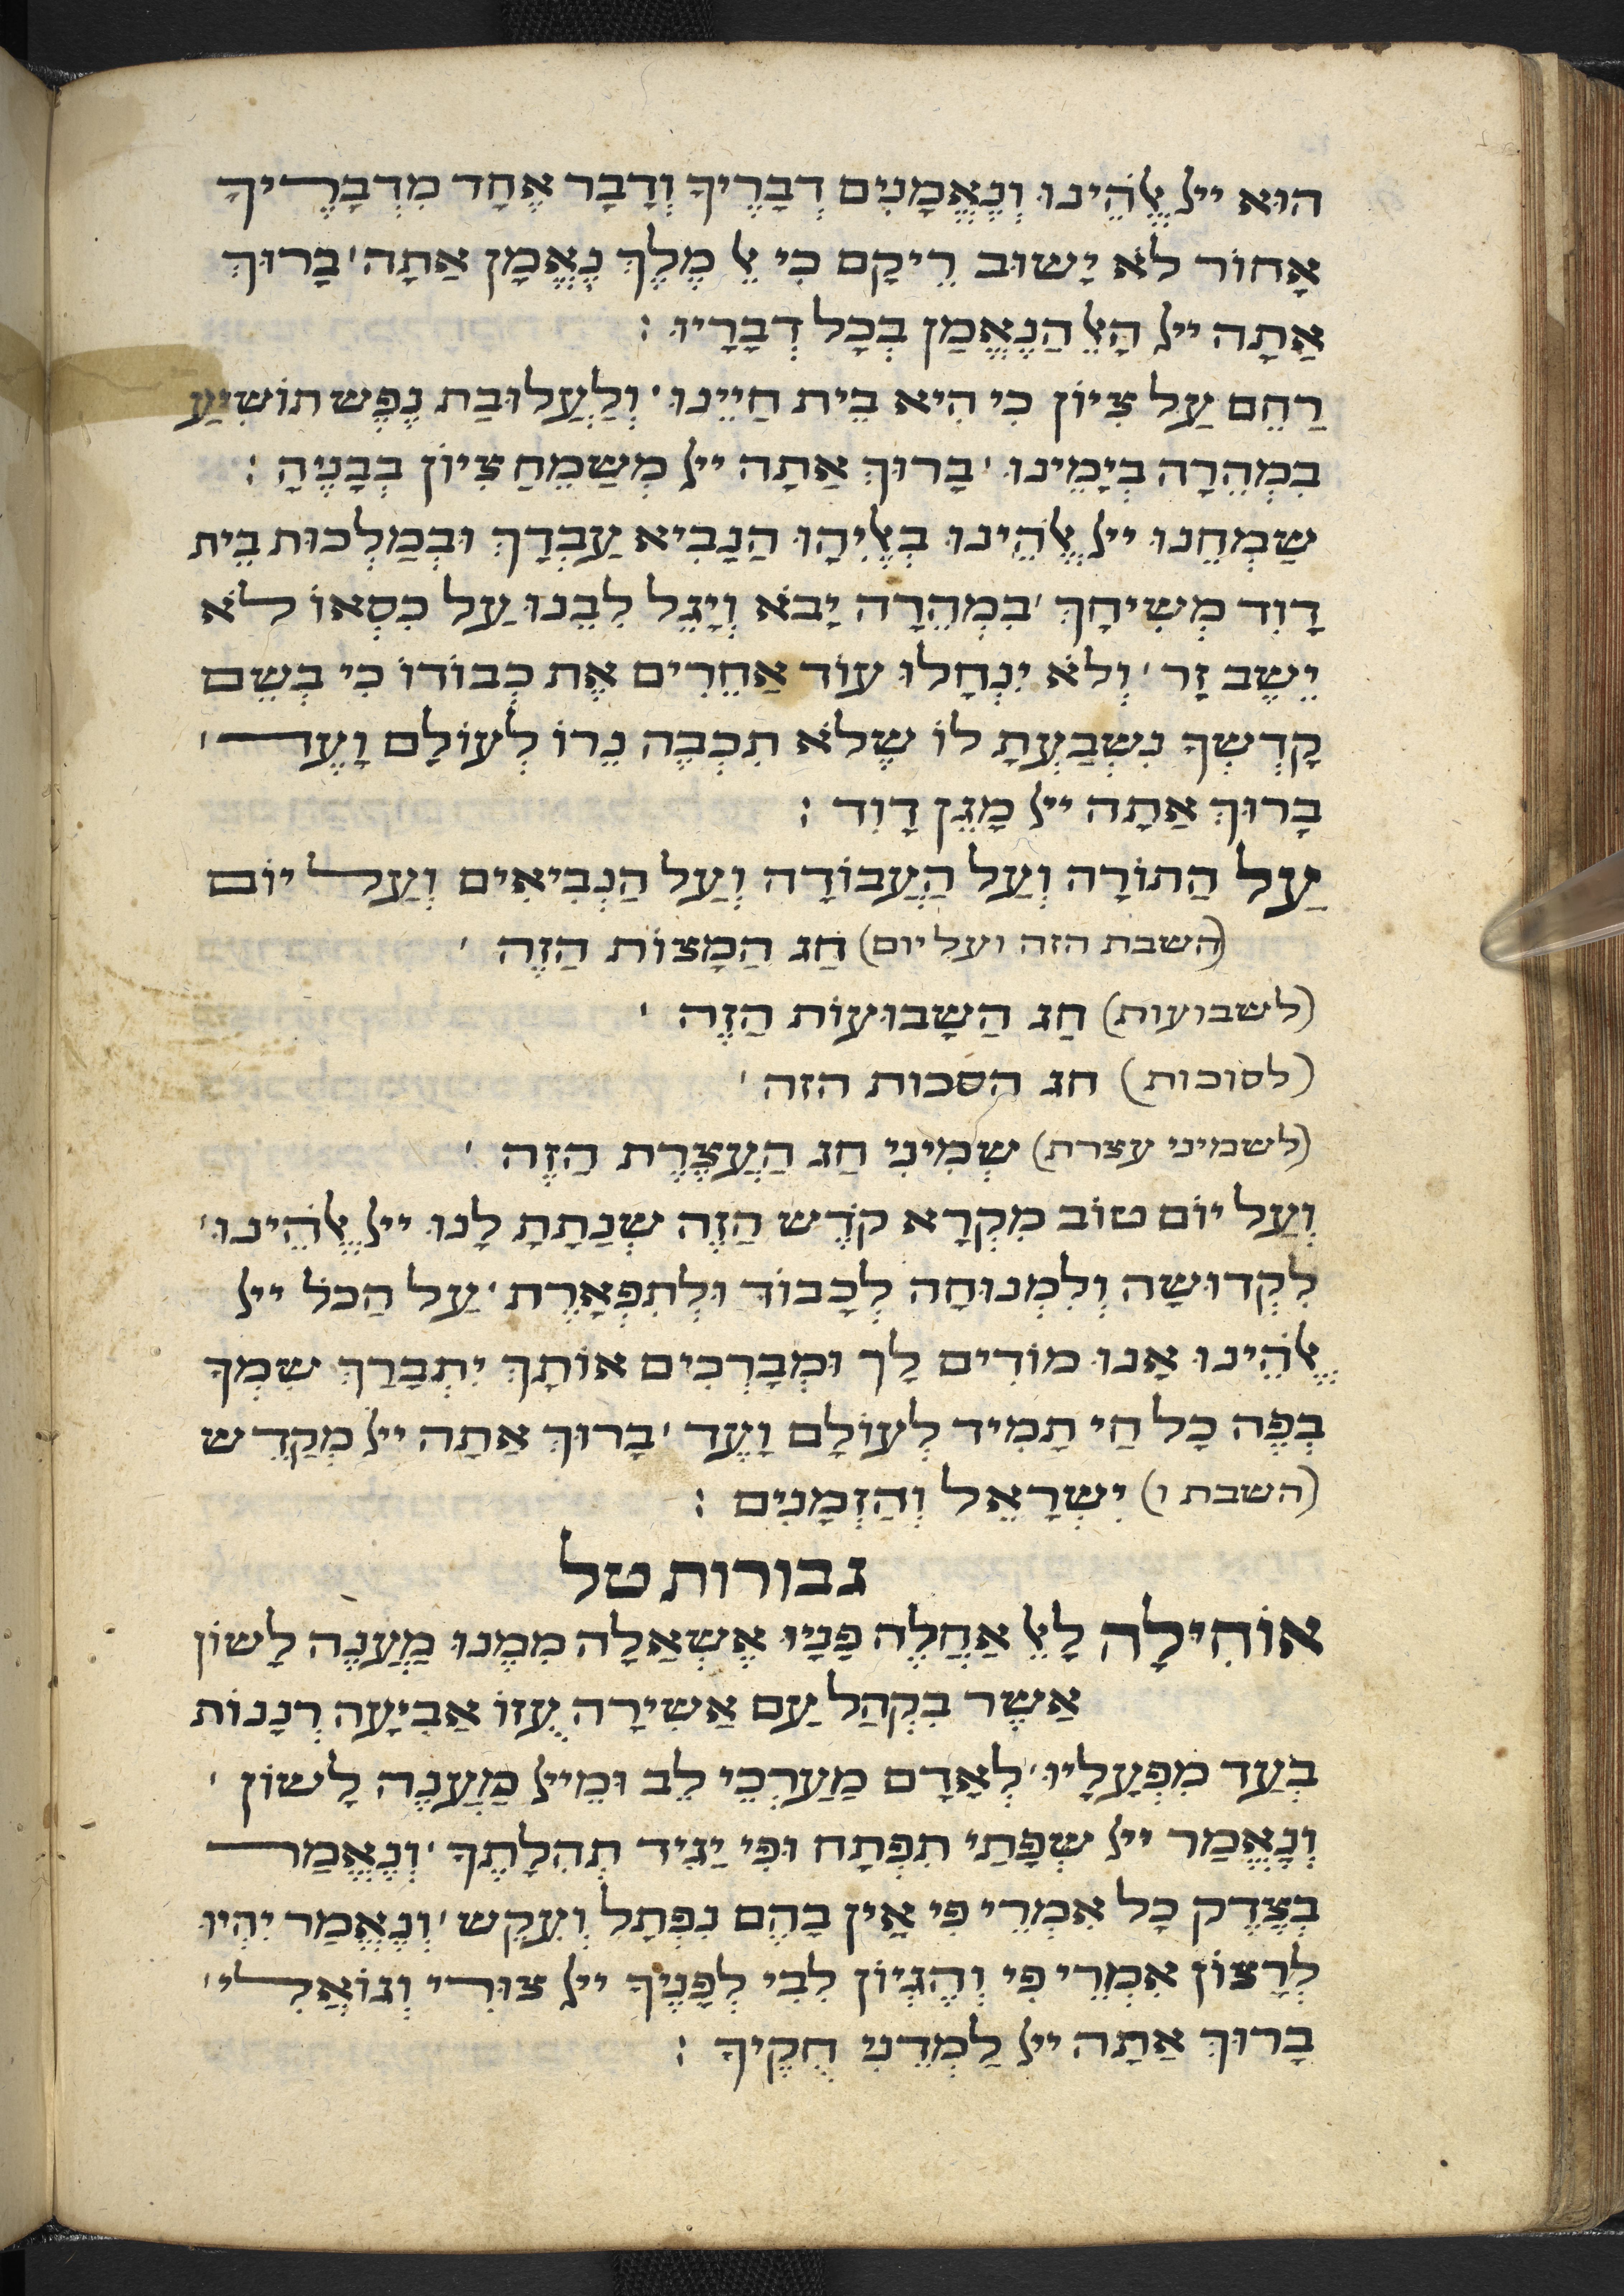 הוּא ייל אֱלֹהֵינוּ וְנֶאֱמָנִים דְבָרֶיךָ וְדָבָר אֶחָד מִדְבָרֶיךָ
אָחוֹר לֹא יָשׁוּב רֵיקָם כִי אֵל מֶלֶךְ נֶאֱמָן אַתָה' בָרוּךְ
אַתָה ייל הָאֵל הַנֶאֱמַן בְכָל דְבָרָיו :
רַחֵם עַל צִיוֹן כִי הִיא בֵית חַיֵינוּ' וְלַעֲלוּבַת נֶפֶשׁ תוֹשִׁיעַ
בִמְהֵרָה בְיָמֵינוּ' בָרוּךְ אַתָה ייל מְשַׂמֵחַ צִיוֹן בְבָנֶיהָ :
שַׂמְחֵנוּ ייל אֱלֹהֵינוּ בְאֵלִיָהוּ הַנָבִיא עַבְדָךְ וּבְמַלְכוּת בֵית
דָוִד מְשִׁיחָךְ' בִמְהֵרָה יָבֹא וְיָגֵל לִבֵנוּ עַל כִסְאוֹ לֹא
יֵשֵׁב זָר' וְלֹא יִנְחָלוּ עוֹד אַחֵרִים אֶת כְבוֹדוֹ כִי בְשֵׁם
קָדְשְׁךָ נִשְׁבַעְתָ לוֹ שֶׁלֹא תִכְבֶה נֵרוֹ לְעוֹלָם וָעֶד'
בָרוּךְ אַתָה ייל מָגֵן דָוִד :
עַל הַתוֹרָה וְעַל הָעֲבוֹדָה וְעַל הַנְבִיאִים וְעַל יוֹם
(השבת הזה ועל יום) חַג הַמַצוֹת הַזֶה '
(לשבועות) חַג הַשָׁבוּעוֹת הַזֶה '
(לסוכות) חג הסכות הזה '
(לשמיני עצרת) שְׁמִינִי חַג הָעֲצֶרֶת הַזֶה '
וְעַל יוֹם טוֹב מִקְרָא קֹדֶשׁ הַזֶה שֶׁנָתַתָ לָנוּ ייל אֱלֹהֵינוּ'
לִקְדוּשָׁה וְלִמְנוּחָה לְכָבוֹד וּלְתִפְאָרֶת' עַל הַכֹל ייל
אֱלֹהֵינוּ אָנוּ מוֹדִים לָךְ וּמְבָרְכִים אוֹתָךְ יִתְבָרַךְ שִׁמְךָ
בְפֶה כָל חַי תָמִיד לְעוֹלָם וָעֶד' בָרוּךְ אַתָה ייל מְקַדֵשׁ
(השבת ו) יִשְׂרָאֵל וְהַזְמָנִים :
גבורות טל
אוֹחִילָה לָאֵל אַחֲלֶה פָנָיו אֶשְׁאַלָה מִמֶנוּ מַעֲנֶה לָשׁוֹן
אֲשֶׁר בִקְהַל עַם אָשִׁירָה עֻזוֹ אַבִיעָה רְנָנוֹת
בְעַד מִפְעָלָיו' לְאָדָם מַעַרְכֵי לֵב וּמֵייל מַעֲנֶה לָשׁוֹן '
וְנֶאֱמַר ייל שְׂפָתַי תִפְתָח וּפִי יַגִיד תְהִלָתֶךָ' וְנֶאֱמַר
בְצֶדֶק כָל אִמְרֵי פִי אֵין בָהֶם נִפְתָל וְעִקֵשׁ' וְנֶאֱמַר יִהְיוּ
לְרָצוֹן אִמְרֵי פִי וְהֶגְיוֹן לִבִי לְפָנֶיךָ ייל צוּרִי וְגוֹאֲלִי'
בָרוּךְ אַתָה ייל לַמְדֵנִי חֻקֶיךָ :